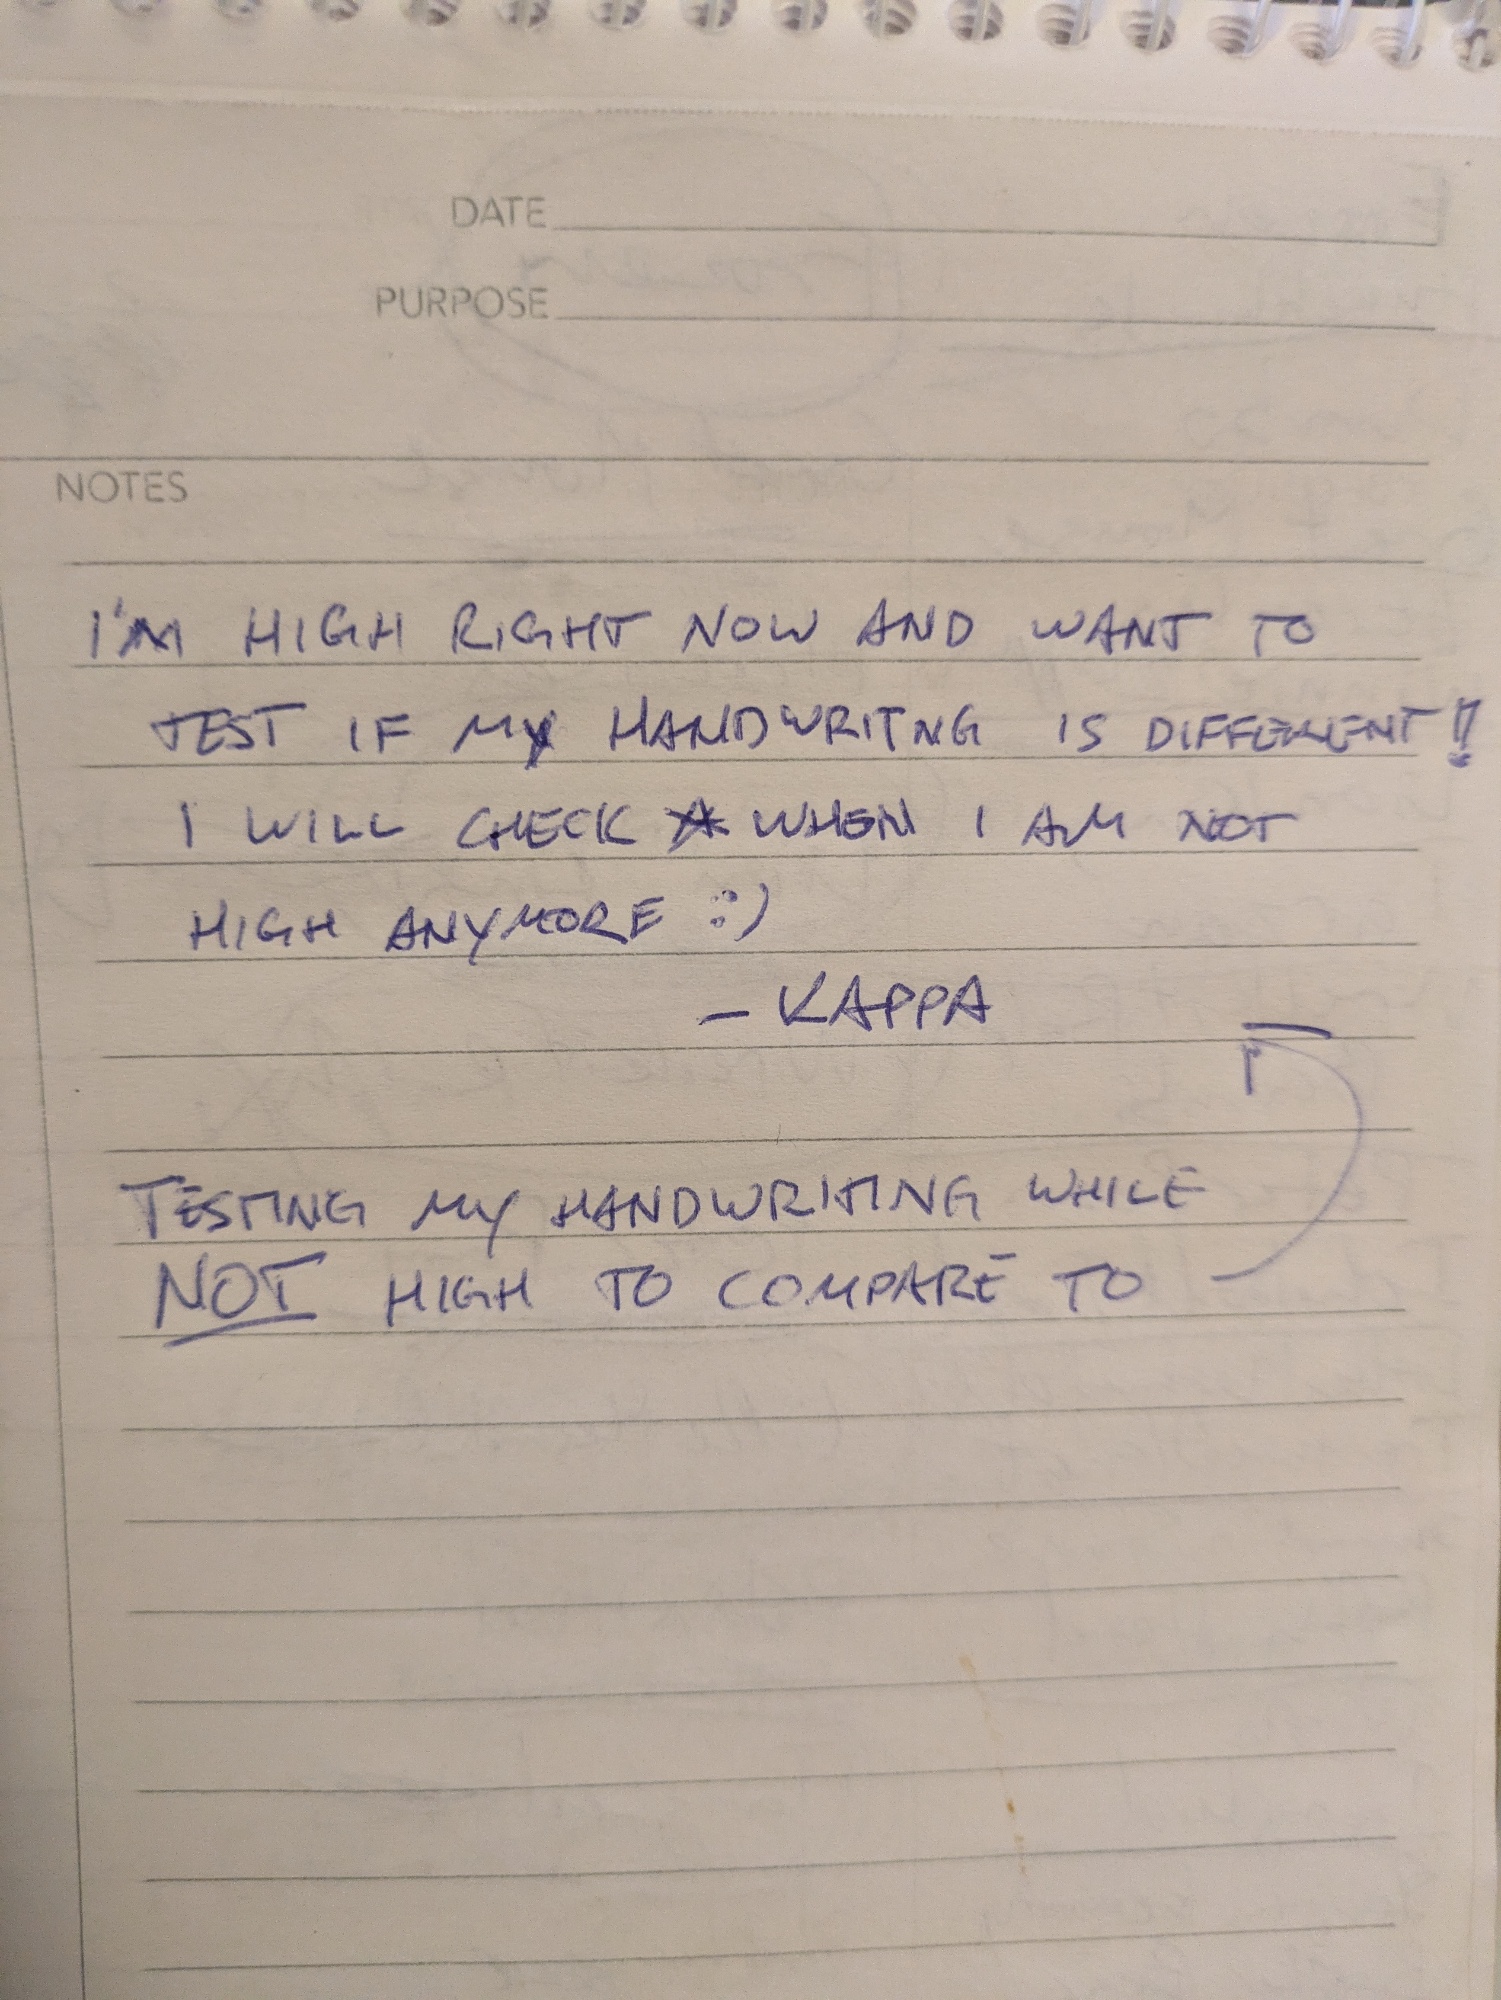 DATE
PURPOSE
NOTES
I'M HIGH RIGHT NOW AND WANT TO
TEST IF MY HANDWRITNG IS DIFFERENT!!
I WILL CHECK WHEN I AM NOT
HIGH ANYMORE :)
- KAPPA
TESTING MY HANDWRITING WHILE
NOT HIGH TO COMPARE TO